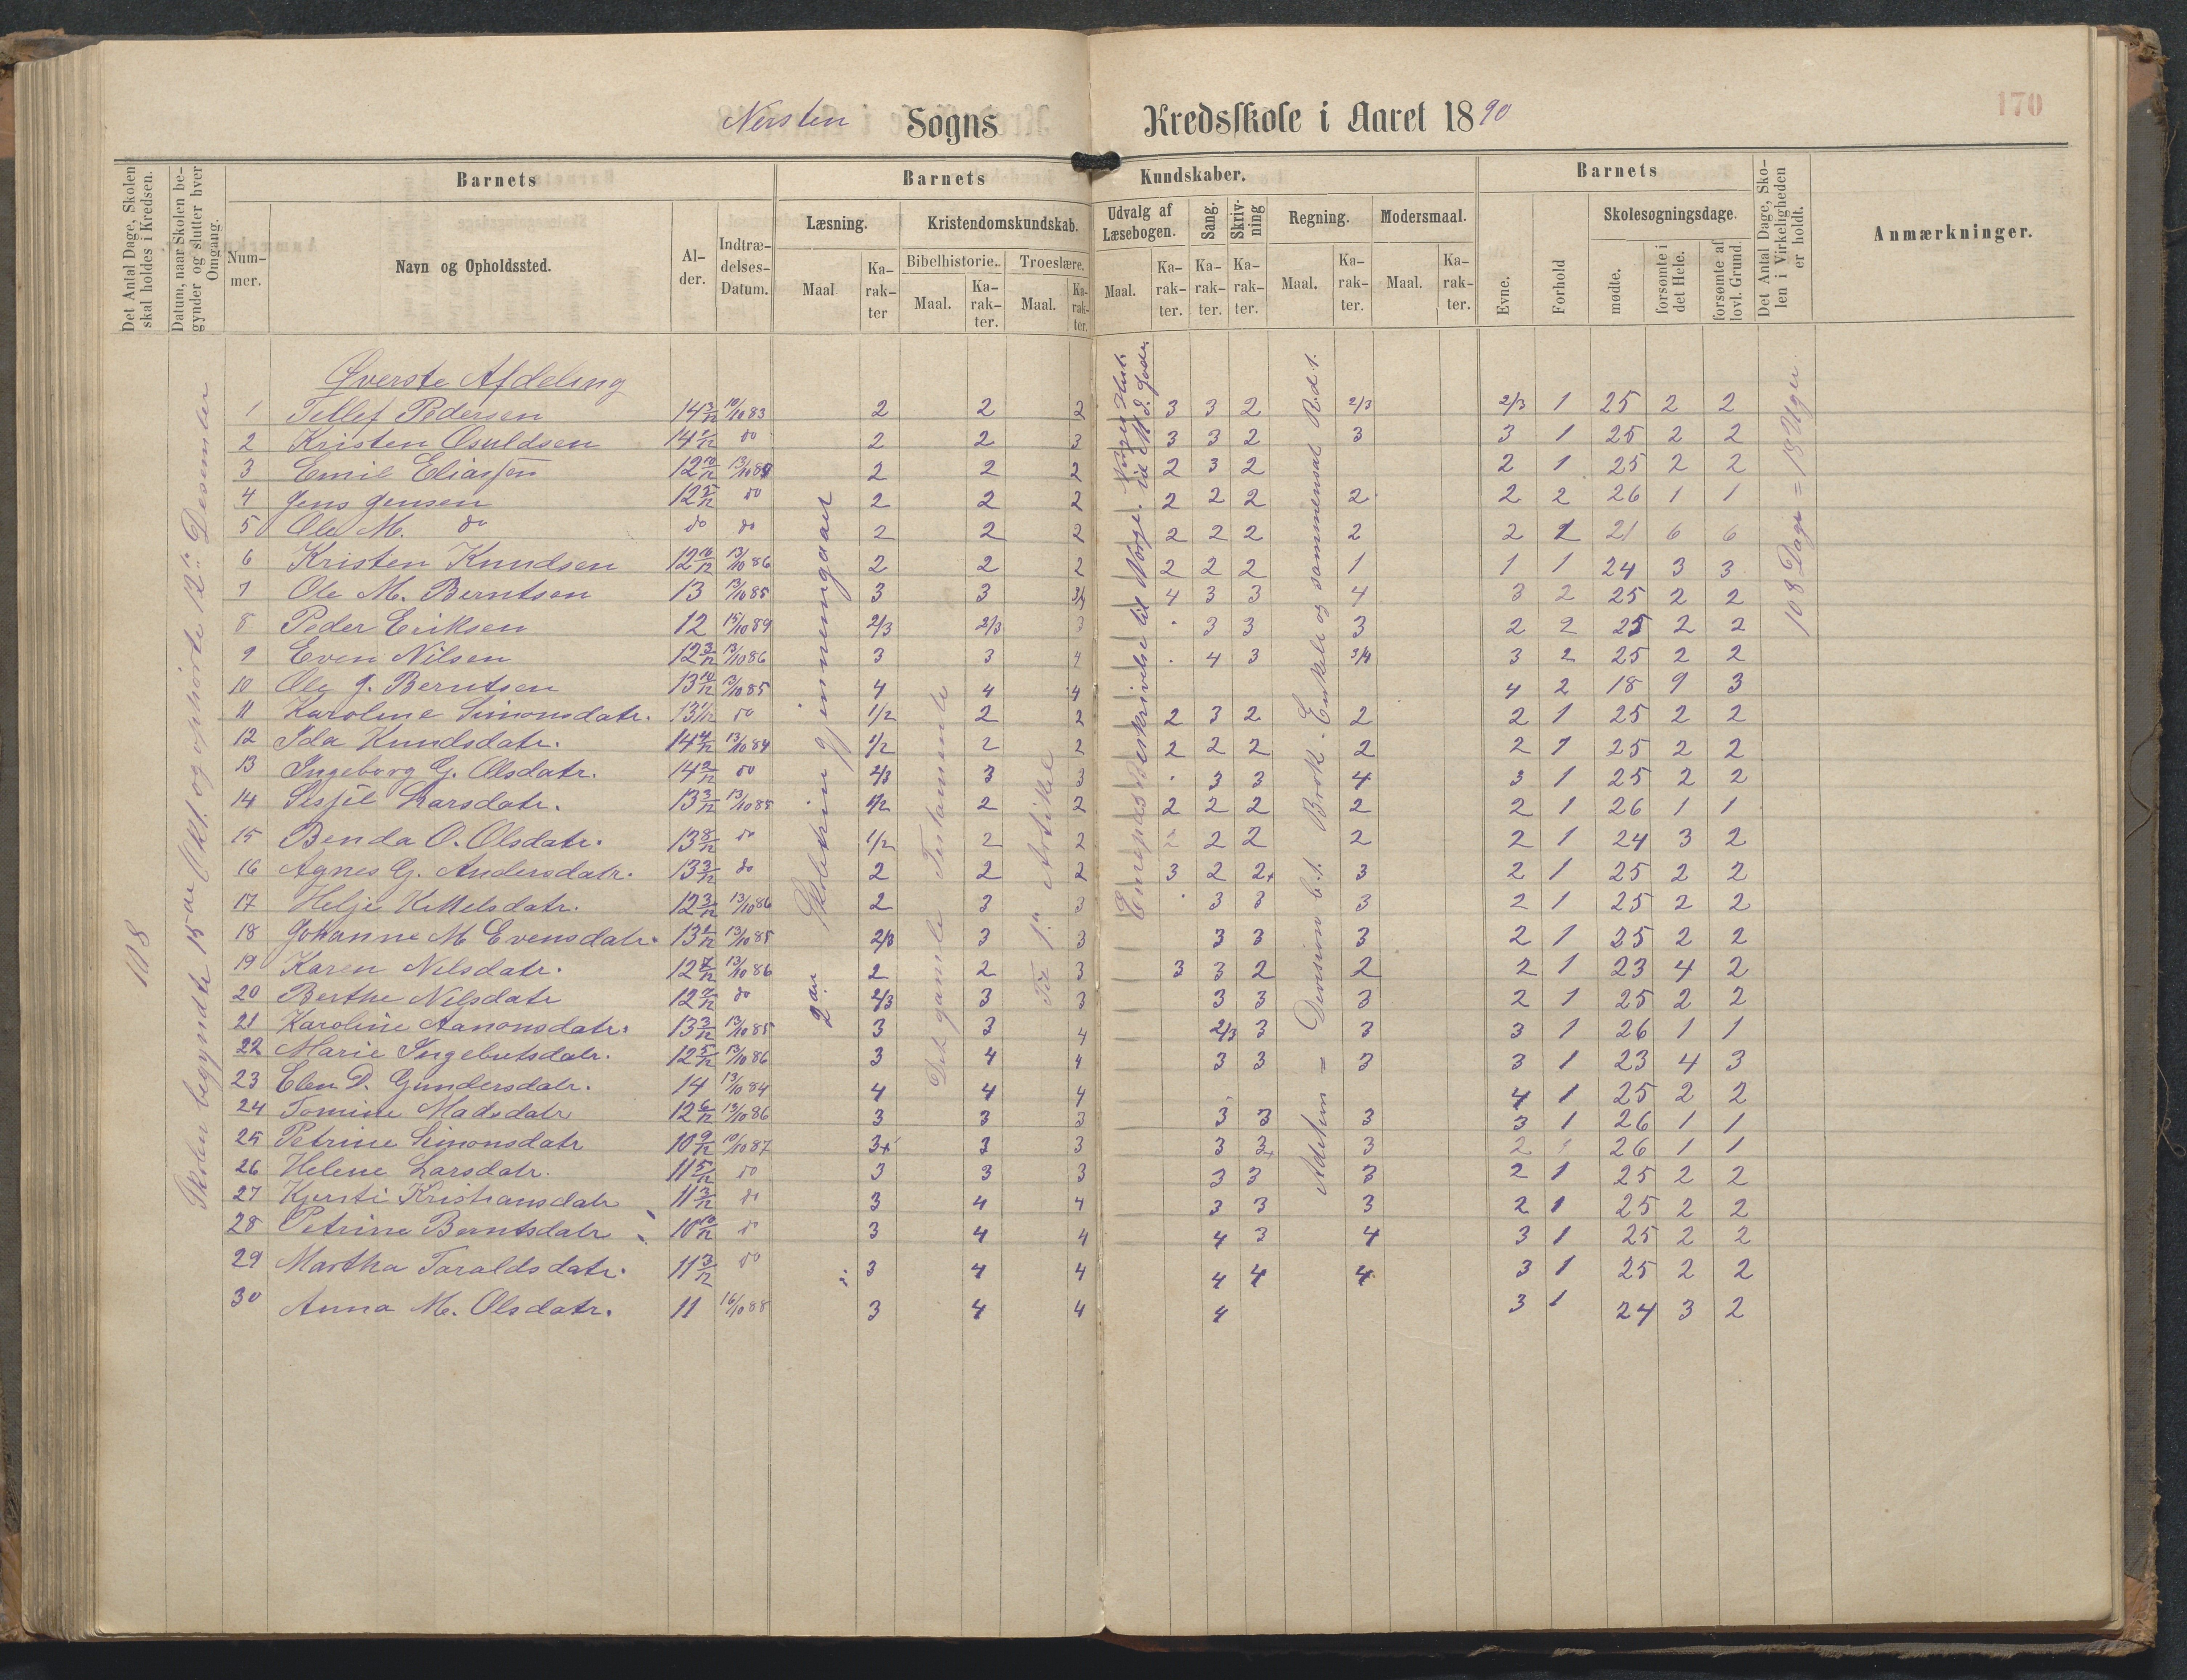 170
Nersten Sogns Kredsskole i Aaret 1890
Det Antal Dage, Skolen skal holdes i Kredsen.
Datum, naar Skolen begynder og slutter hver Omgang.
Barnets
Nummer.
Navn og Opholdssted.
Alder.
Indtrædelses-Datum.
Barnets Kundskaber.
Læsning.
Maal
Karakter
Kristendomskundskab.
Bibelhistorie.
Maal.
Karakter.
Troeslære.
Maal.
Karakter.
Udvalg af Læsebogen.
Maal.
Karakter.
Sang.
Karakter.
Skrivning
Karakter.
Regning.
Maal.
Karakter.
Modersmaal.
Maal.
Karakter.
Barnets
Evne.
Forhold
Skolesøgningsdage.
mødte.
forsømte i det Hele.
forsømte af lovl. Grund.
Det Antal Dage, Skolen i Virkeligheden er holdt.
Anmærkninger.
108
Skolen begyndte 15de Okt. og ophørte 12te Desember
Skolen gjennemgaaet
Det gamle Testamente
Til 1ste Artikel
Europas Beskrivelse til Norge.
Addition = Division b. 1. Brøk. Enkele og sammensat R.d.1.
108 Dage = 18 Uger
Øverste Afdeling
1 Tellef Pedersen 14 3/12 10/10 83 2 2 2 3 3 2 2/3 2/3 1 25 2 2
2 Kristen Osuldsen 14 1/12 do 2 2 3 3 3 2 3 3 1 25 2 2
3 Emil Eliassen 12 10/12 2 2 2 2 3 2 2 1 25 2 2
4 Jens Jensen 12 5/12 do 2 2 2 2 2 2 2 2 2 26 1 1
5 Ole M. do do do 2 2 2 2 2 2 2 2 1 21 6 6
6 Kristen Knudsen 12 10/12 13/10 86 2 2 2 2 2 2 1 1 1 24 3 3
7 Ole M. Berntsen 13 13/10 85 3 3 3/4 4 3 3 4 3 2 25 2 2
8 Peder Eriksen 12 15/10 89 2/3 2/3 3 . 3 3 3 2 2 25 2 2
9 Even Nilsen 12 3/12 13/10 86 3 3 4 . 4 3 3/4 3 2 25 2 2
10 Ole J. Berntsen 13 10/12 13/10 85 4 4 4 4 2 18 9 3
11 Karoline Simonsdatr. 13 1/12 do 1/2 2 2 2 3 2 2 2 1 25 2 2
12 Ida Knudsdatr. 14 4/12 13/10 84 1/2 2 2 2 2 2 2 2 1 25 2 2
13 Ingeborg G. Olsdatr. 14 2/12 do 2/3 3 3 . 3 3 4 3 1 25 2 2
14 Sisjel Larsdatr. 13 3/12 13/10 85 1/2 2 2 2 2 2 2 2 1 26 1 1
15 Benda O. Olsdatr. 13 8/12 do 1/2 2 2 2 2 2 2 2 1 24 3 2
16 Agnes G. Andersdatr. 13 3/12 do 2 2 2 3 2 2+ 3 2 1 25 2 2
17 Helje Kittelsdatr. 12 3/12 13/10 86 2 3 3 . 3 3 3 2 1 25 2 2
18 Johanne M Evensdatr. 13 2/12 13/10 85 2/3 3 3 3 3 3 2 1 25 2 2
19 Karen Nilsdatr. 12 7/12 13/10 86 2 2 3 3 3 2 2 2 1 23 4 2
20 Berthe Nilsdatr 12 2/12 do 2/3 3 3 3 3 3 2 1 25 2 2
21 Karoline Aanonsdatr. 13 3/12 13/10 85 3 3 4 2/3 3 3 3 1 26 1 1
22 Marie Ingebutsdatr. 12 5/12 13/10 86 3 4 4 3 3 3 3 1 23 4 3
23 Elen D. Gundersdatr. 14 13/10 84 4 4 4 4 1 25 2 2
24 Tomine Madsdatr 12 6/12 13/10 86 3 3 3 3 3 3 3 1 26 1 1
25 Petrine Simonsdatr 10 9/12 10/10 87 3+ 3 3 3 3+ 3 2 1 26 1 1
26 Helene Larsdatr. 11 5/12 do 3 3 3 3 3 3 2 1 25 2 2
27 Kjersti Kristiansdatr 11 3/12 do 3 4 4 3 3 3 2 1 25 2 2
28 Petrine Berntsdatr 10 10/12 do 3 4 4 4 3 4 3 1 25 2 2
29 Martha Taraldsdatr. 11 3/12 do 3 4 4 4 4 4 3 1 25 2 2
30 Anna M. Olsdatr. 11 16/10 88 3 4 4 4 3 1 24 3 2